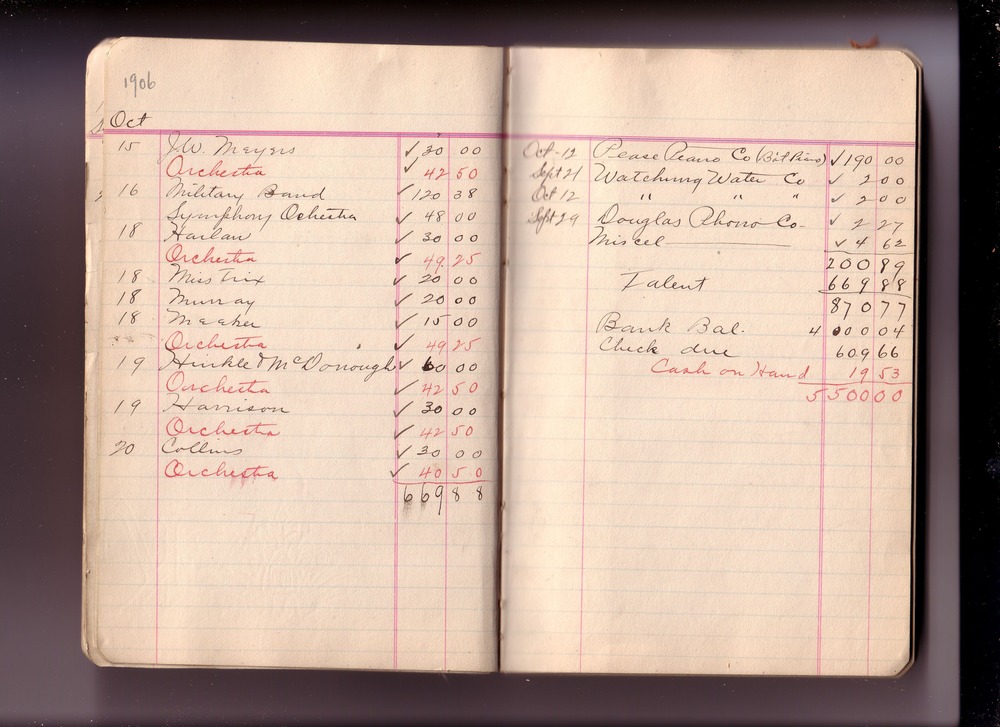 1906
Oct
15 J.W. Meyers ✓ 30 00
Orchestra ✓ 42 50
16 Military Band ✓ 120 38
Symphony Ochestra ✓ 48 00
18 Harlan ✓ 30 00
Orchestra ✓ 49 25
18 Miss Trix ✓ 20 00
18 Murray ✓ 20 00
18 Meeker ✓ 15 00
Orchestra ✓ 49 25
19 Hinkle & McDonough ✓ 60 00
Orchestra ✓ 42 50
19 Harrison ✓ 30 00
Orchestra ✓ 42 50
20 Collins ✓ 30 00
Orchestra ✓ 40 50
669 88
Oct-12 Pease Piano Co (Bal Piano) ✓ 190 00
Sept 21 Watchung Water Co ✓ 2 00
Oct 12 " " " ✓ 2 00
Sept 29 Douglas Phono Co- ✓ 2 27
Miscel ✓ 4 62
200 89
Talent 669 88
870 77
Bank Bal. 4 000 04
Check due 609 66
Cash on Hand 19 53
5 500 00